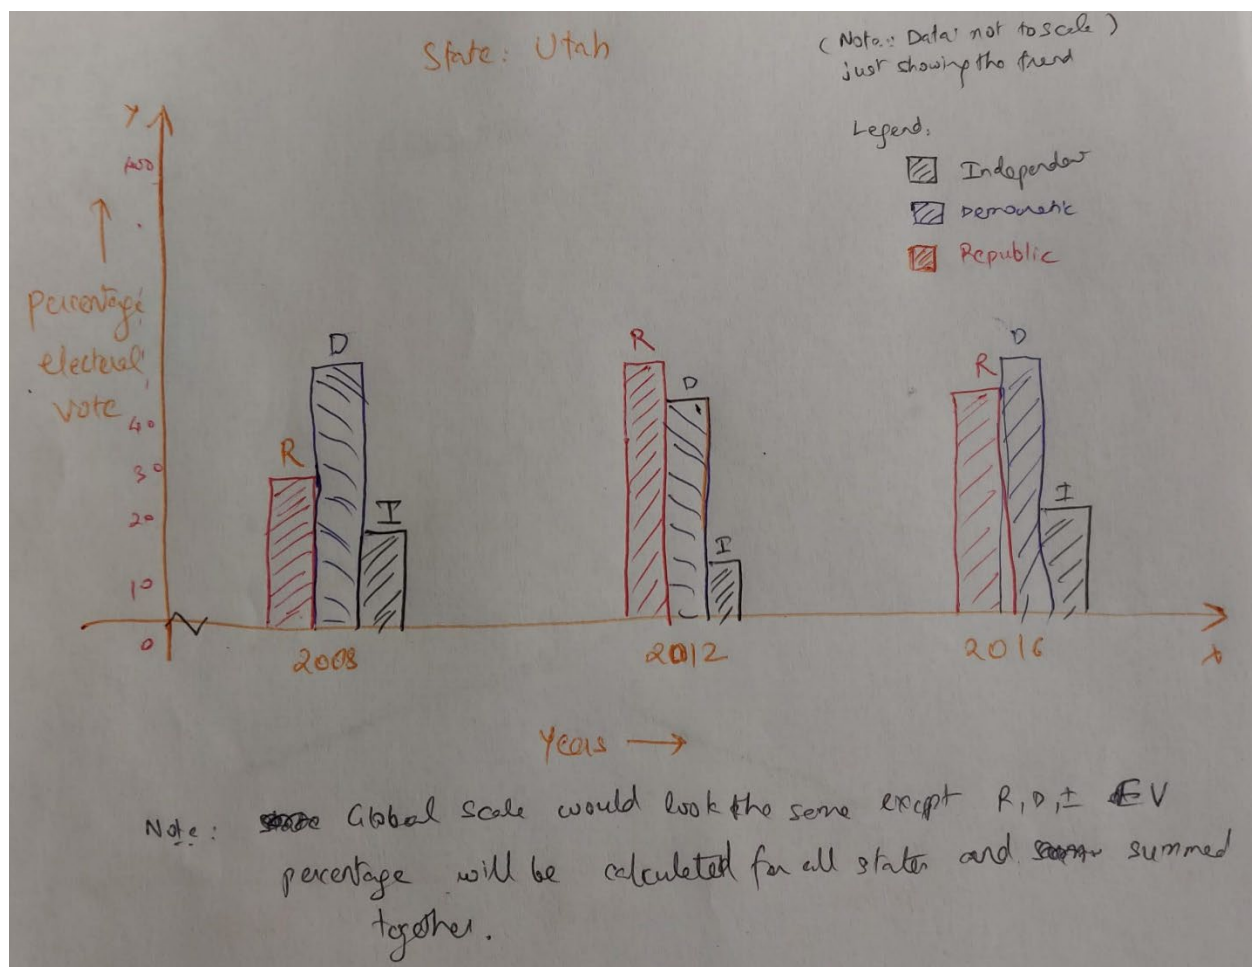 State: Utah
(Note: Data not to scale)
just showing the trend
Legend:
Independent
Democratic
Republic
Y
100
percentage
electoral
vote
40
30
20
10
0
R
D
I
R
D
I
R
D
I
2008
2012
2016
x
Years
Note: Global scale would look the same except R, D, I EV
percentage will be calculated for all states and summed
together.